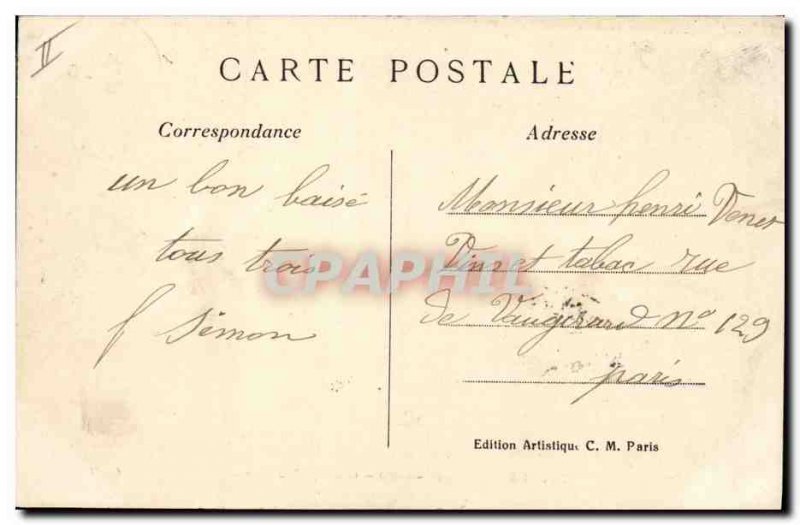 II
CARTE POSTALE
Correspondance
un bon baisé
tous trois
f Simon
Adresse
Monsieur henri Venet
Vins et tabac rue
de Vaugirard n° 129
paris
Edition Artistique C. M. Paris
CPAPHIL